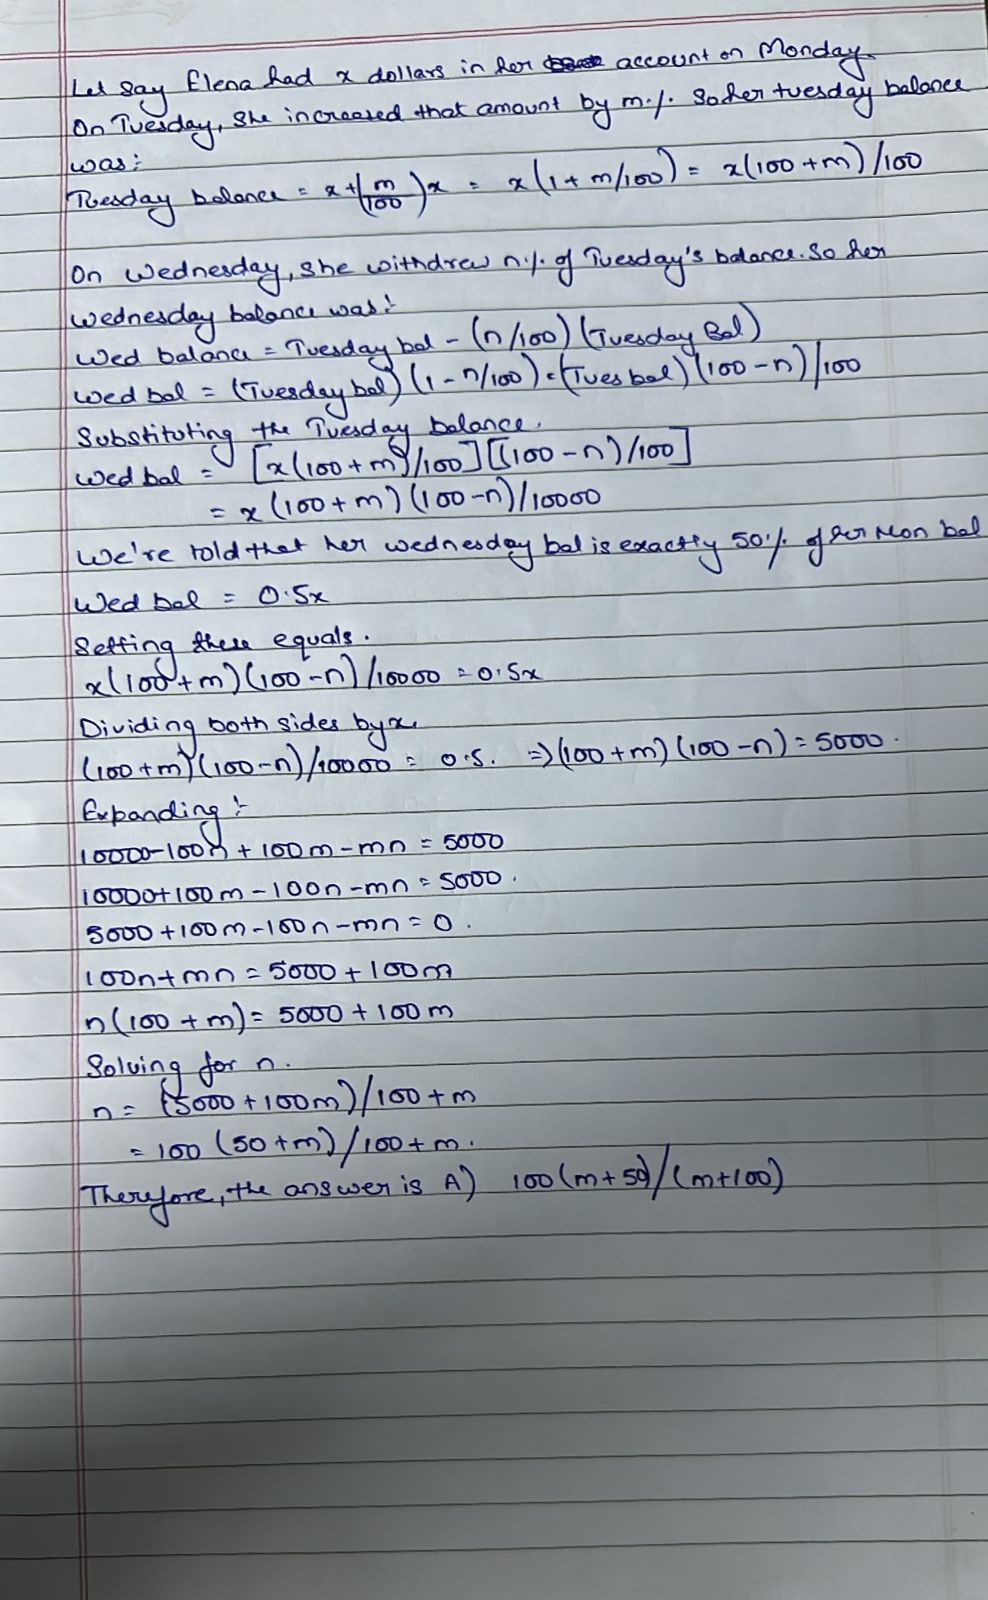 Let say Elena had x dollars in her account on Monday.
On Tuesday, she increased that amount by m%. So her tuesday balance
was:
Tuesday balance = x+(m/100)x = x(1+m/100) = x(100+m)/100
On Wednesday, she withdrew n%. of Tuesday's balance. So her
Wednesday balance was:
Wed balance = Tuesday bal - (n/100) (Tuesday Bal)
Wed bal = (Tuesday bal) (1-n/100) = (Tues bal) (100-n)/100
Substituting the Tuesday balance.
Wed bal = [x(100+m)/100][(100-n)/100]
= x (100+m) (100-n)/10000
We're told that her wednesday bal is exactly 50%. of her Mon bal
Wed bal = 0.5x
Setting these equals.
x(100+m)(100-n)/10000 = 0.5x
Dividing both sides by x.
(100+m)(100-n)/10000 = 0.5. => (100+m) (100-n) = 5000.
Expanding :-
10000-100n + 100m - mn = 5000
10000+100m - 100n - mn = 5000.
5000 + 100m - 100n - mn = 0.
100n+mn = 5000 + 100m
n(100 + m) = 5000 + 100m
Solving for n.
n = (5000 + 100m)/100+m
= 100 (50+m)/100+m.
Therefore, the answer is A) 100(m+50)/(m+100)